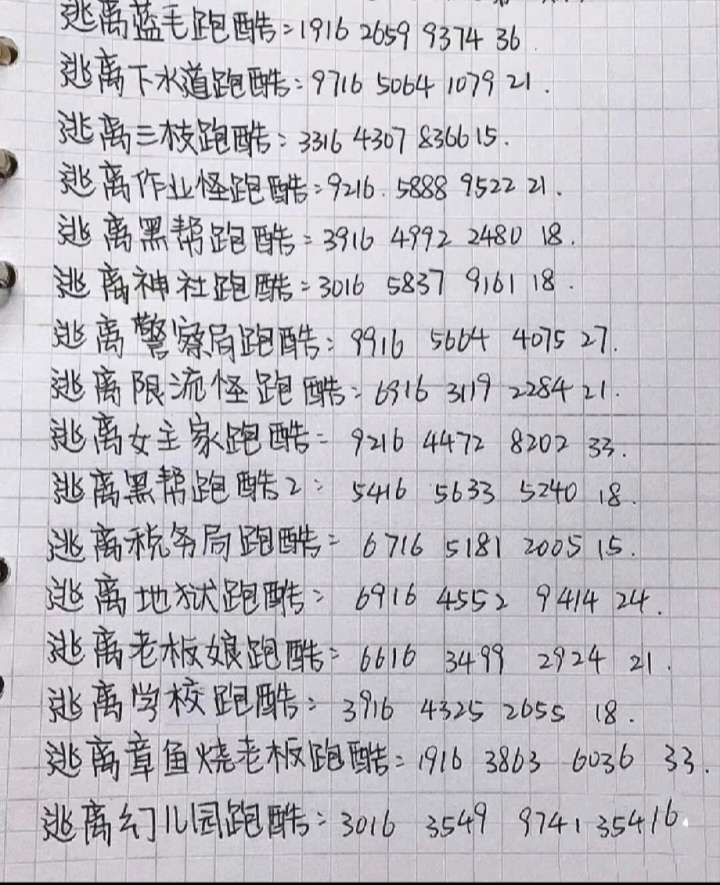 逃离蓝毛跑酷:1916 2659 9374 36
逃离下水道跑酷:9716 5064 1079 21.
逃离三枝跑酷:3316 4307 8366 15.
逃离作业怪跑酷:9216. 5888 9522 21.
逃离黑帮跑酷:3916 4992 2480 18.
逃离神社跑酷:3016 5837 9161 18.
逃离警察局跑酷:9916 5664 4075 27.
逃离限流怪跑酷:6916 3119 2284 21.
逃离女主家跑酷:9216 4472 8202 33.
逃离黑帮跑酷2:5416 5633 5240 18.
逃离税务局跑酷:6716 5181 2005 15.
逃离地狱跑酷:6916 4552 9414 24.
逃离老板娘跑酷:6616 3499 2924 21.
逃离学校跑酷:3916 4325 2655 18.
逃离章鱼烧老板跑酷:1916 3863 6036 33.
逃离幻儿园跑酷:3016 3549 9741 35416.